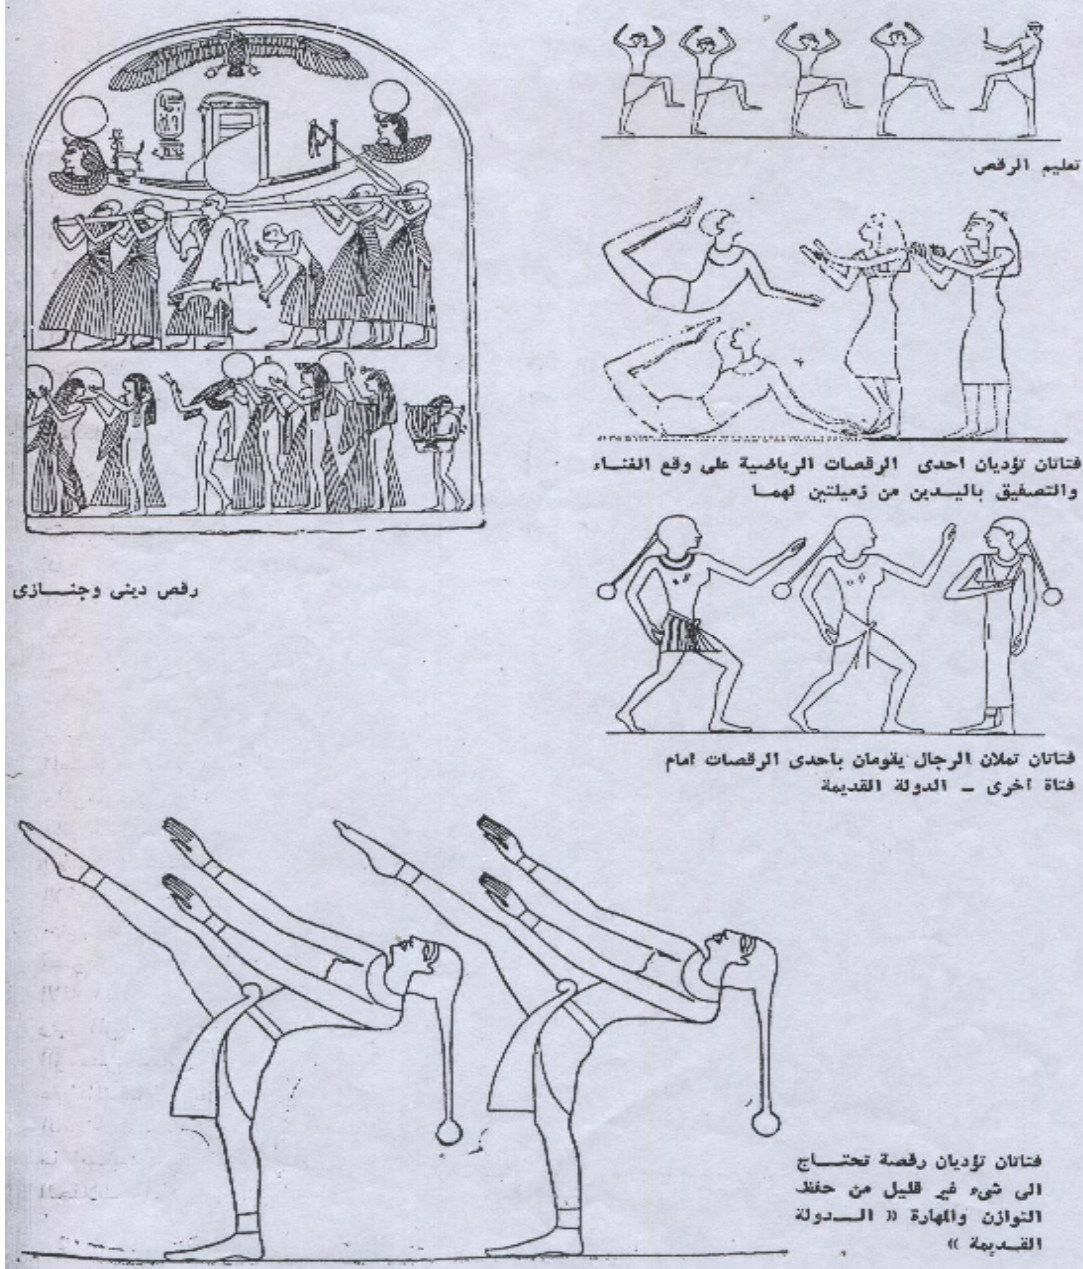 تعليم الرقص
فتاتان تؤديان احدى الرقصات الرياضية على وقع الغناء
والتصفيق باليدين من زميلتين لهما
رقص دينى وجنازى
فتاتان تمثلان الرجال يقومان باحدى الرقصات امام
فتاة أخرى – الدولة القديمة
فتاتان تؤديان رقصة تحتاج
الى شىء غير قليل من حفظ
التوازن والمهارة « الدولة
القديمة »